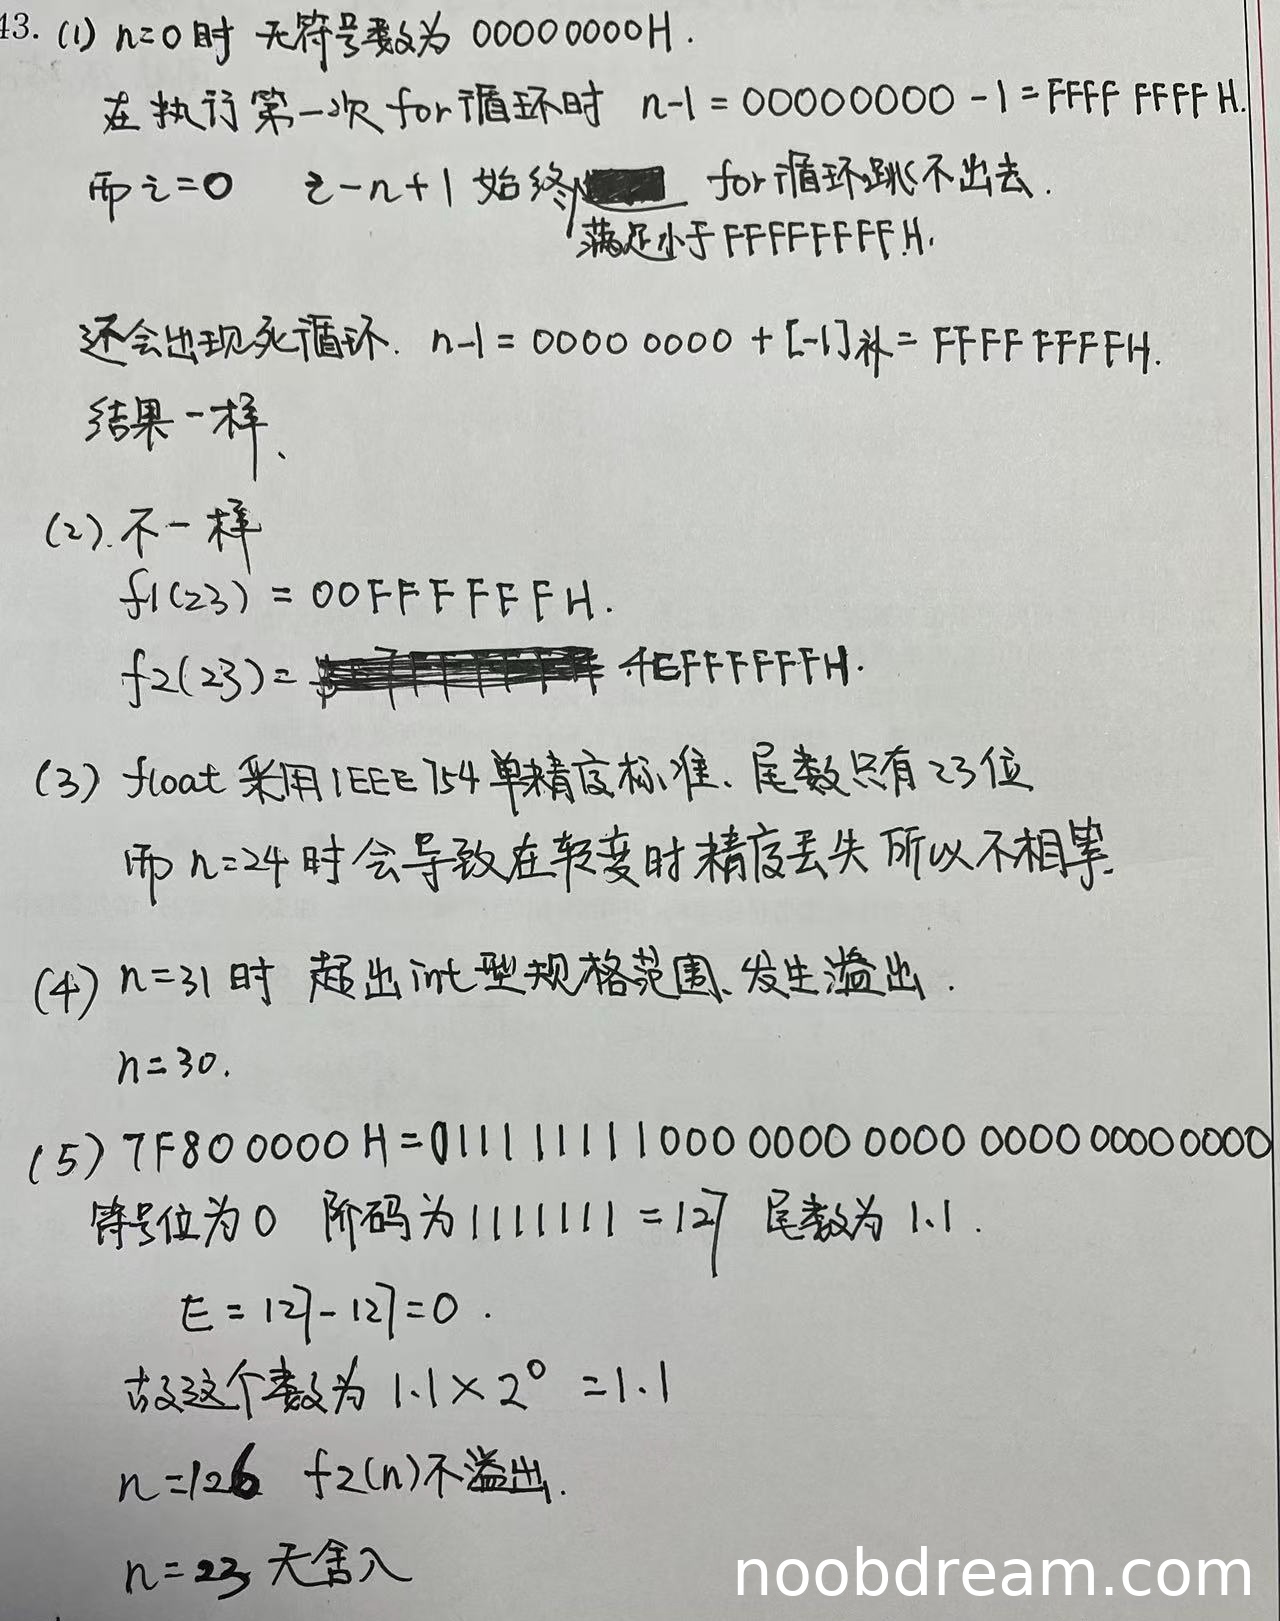 43. (1) n=0时 无符号数为 00000000H.
在执行第一次for循环时 n-1=00000000-1=FFFF FFFF H.
而i=0 i-n+1始终 for循环跳不出去.
满足小于FFFFFFFFH.
还会出现死循环. n-1=0000 0000+[-1]补=FFFF FFFFH.
结果一样、
(2).不一样
f1(23)=00FFFFFFH.
f2(23)= 4EFFFFFFH.
(3) float采用IEEE754单精度标准、尾数只有23位
而n=24时会导致在转变时精度丢失所以不相等.
(4) n=31时 超出int型规格范围、发生溢出.
n=30.
(5) 7F80 0000H=011111111000 0000 0000 0000 0000 0000
符号位为0 阶码为1111111=127 尾数为1.1.
E=127-127=0.
故这个数为1.1×2⁰=1.1
n=126 f2(n)不溢出.
n=23 无舍入
noobdream.com